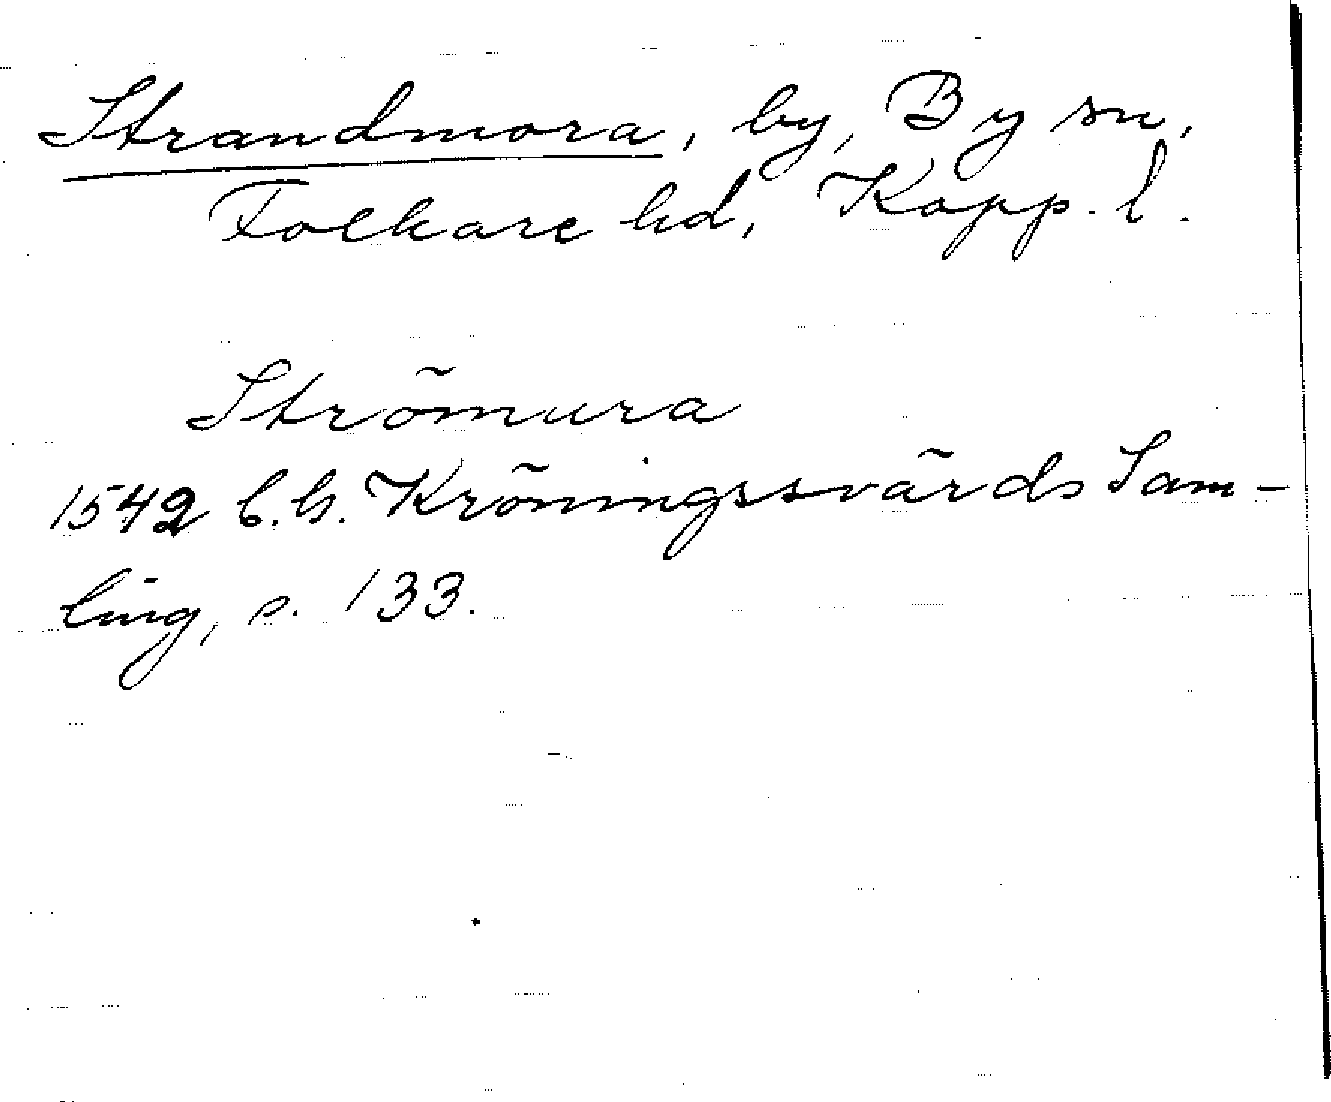 Strandmora, by, By sn,
Folkare hd, Kopp. l.
Strömura
1542 b.h. Kröningssvärds Sam-
ling, s. 133.